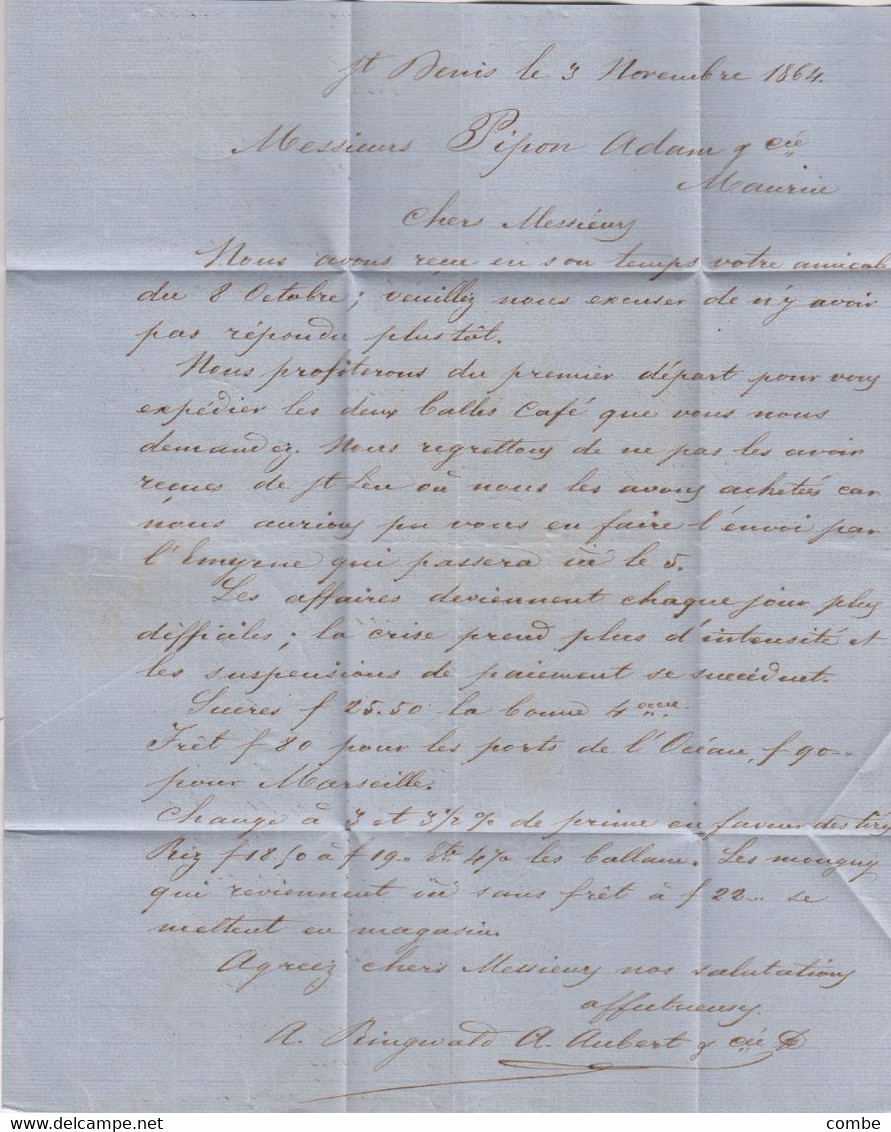 St Denis le 3 Novembre 1864.
Messieurs Pipon Adam & Cie
Maurice
Chers Messieurs
Nous avons reçu en son temps votre amicale
du 8 Octobre; veuillez nous excuser de n'y avoir
pas répondu plus tôt.
Nous profiterons du premier départ pour vous
expédier les deux balles Café que vous nous
demandez. Nous regrettons de ne pas les avoir
reçues de St Leu où nous les avons achetées car
nous aurions pu vous en faire l'envoi par
l'Emyrne qui passera ici le 5.
Les affaires deviennent chaque jour plus
difficiles; la crise prend plus d'intensité et
les suspensions de paiement se succèdent.
Sucres f 25.50 la bonne 4eme
Frêt f 80 pour les ports de l'Océan, f 90..
pour Marseille.
Change à 3 et 3 1/2 % de prime en faveur des tirs
Riz f 18.50 à f 19.. Ete 4% les ballam. Les mounguy
qui reviennent ici sans frêt à f 22.. se
mettent en magasin.
Agréez chers Messieurs nos salutations
affectueuses.
A. Ringwald A. Aubert & Cie
delcampe.net
combe